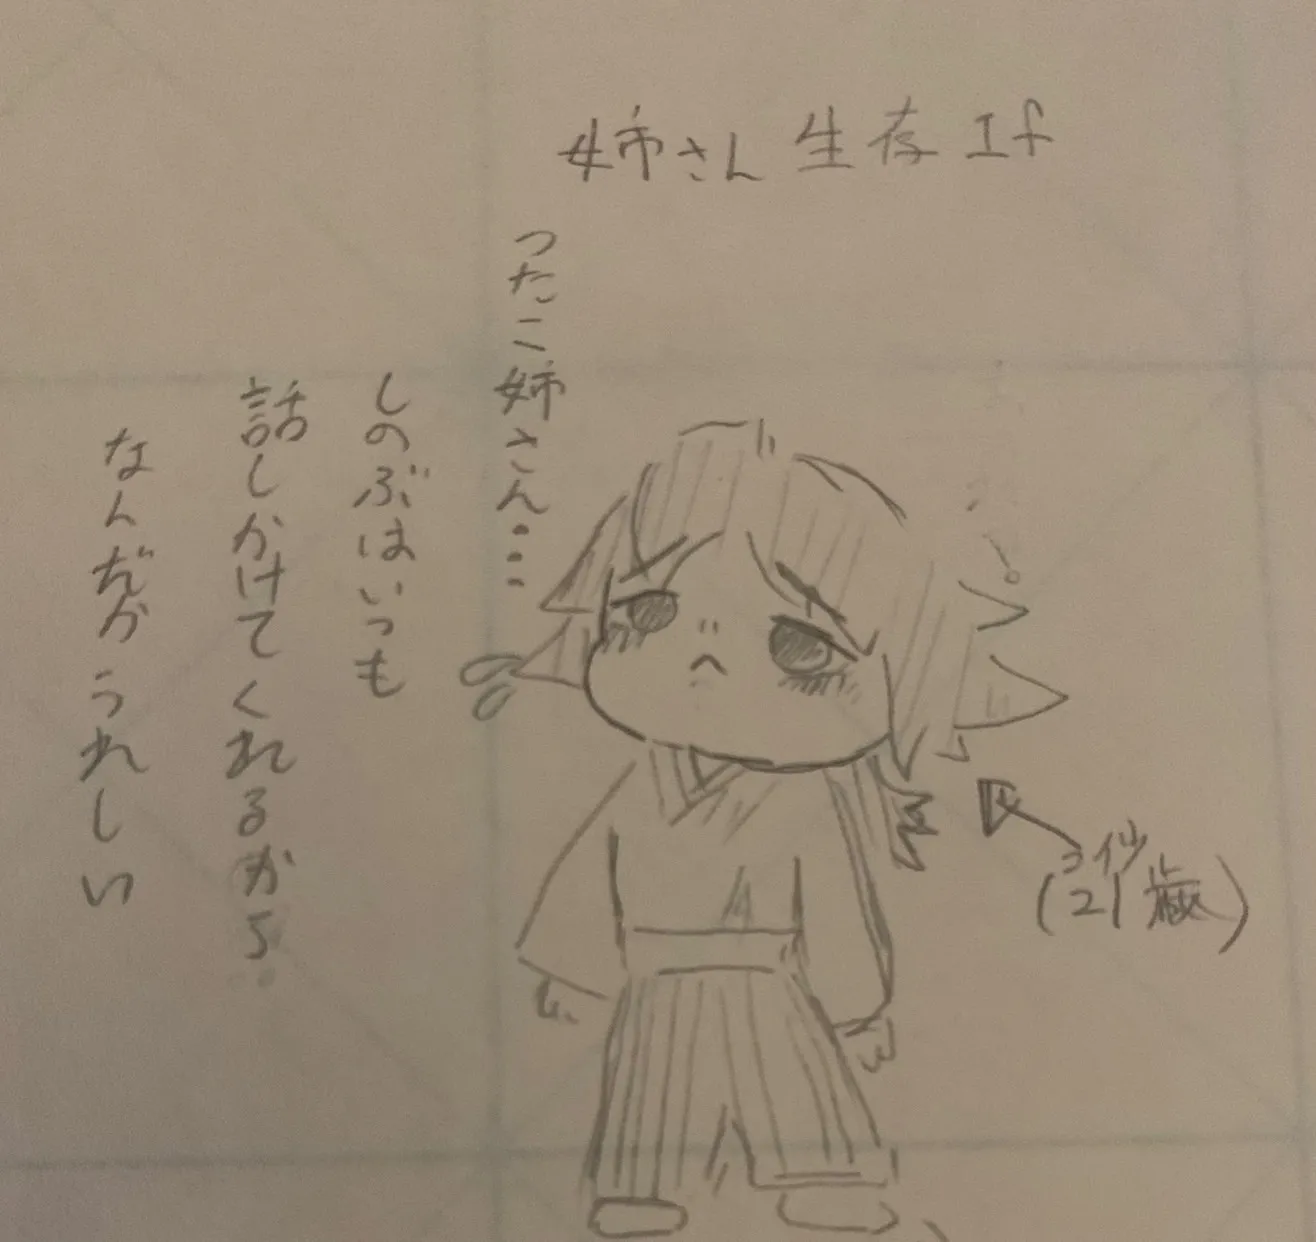 姉さん生存If
つたこ姉さん…
しのぶはいつも
話しかけてくれるから
なんだかうれしい
(21歳)